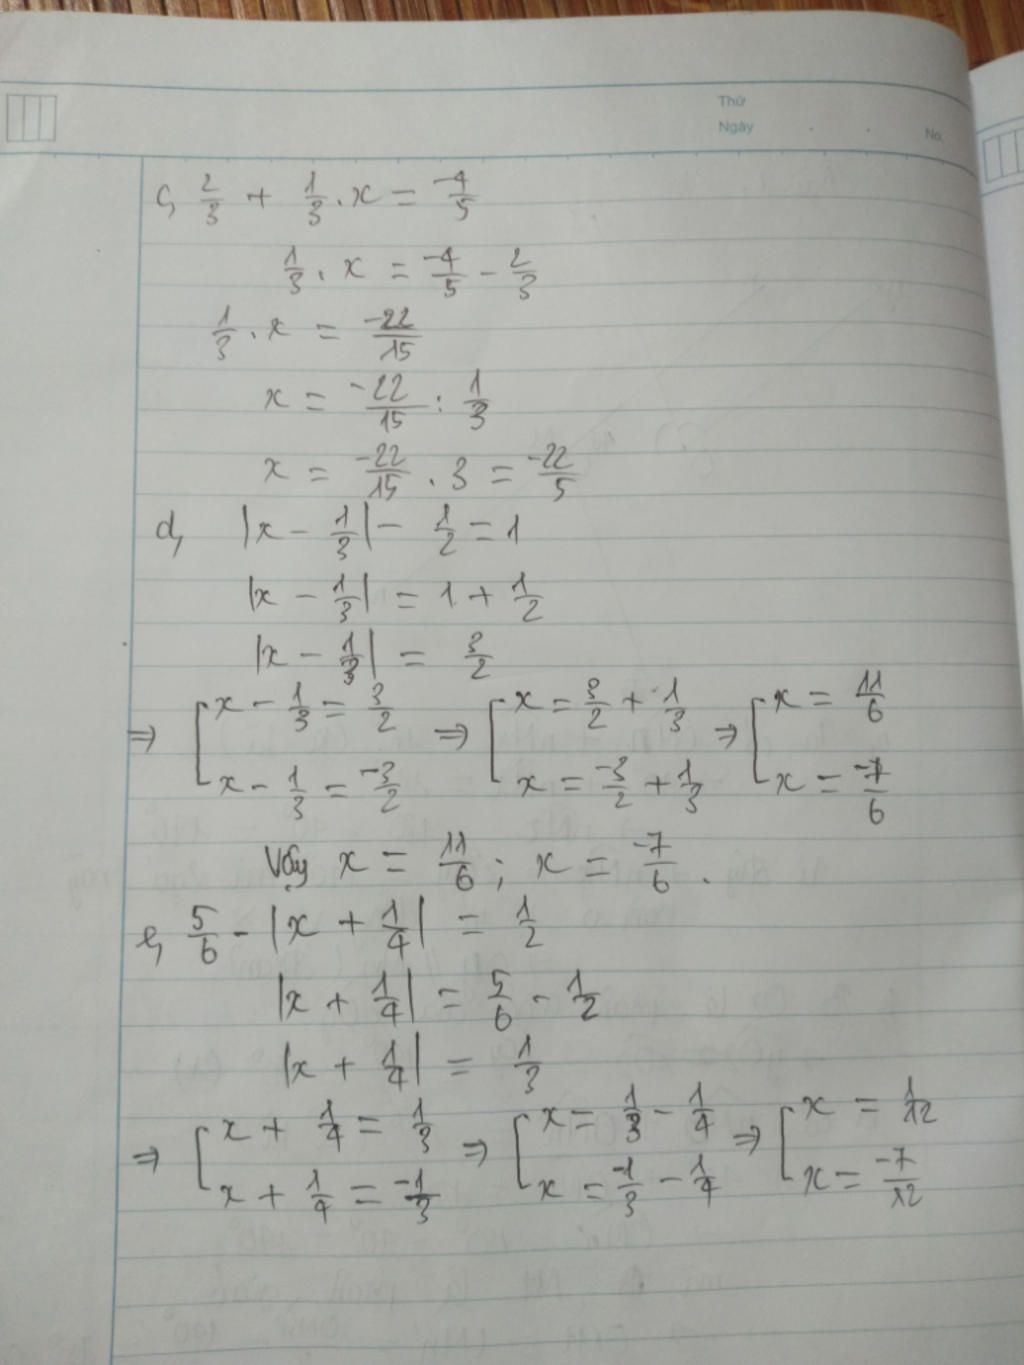 Thứ
Ngày
No.
c, 2/3 + 1/3 . x = -4/5
1/3 . x = -4/5 - 2/3
1/3 . x = -22/15
x = -22/15 : 1/3
x = -22/15 . 3 = -22/5
d, |x - 1/3| - 1/2 = 1
|x - 1/3| = 1 + 1/2
|x - 1/3| = 3/2
⇒ [ x - 1/3 = 3/2 ⇒ [ x = 3/2 + 1/3 ⇒ [ x = 11/6
x - 1/3 = -3/2 x = -3/2 + 1/3 x = -7/6
Vậy x = 11/6 ; x = -7/6 .
e, 5/6 - |x + 1/4| = 1/2
|x + 1/4| = 5/6 - 1/2
|x + 1/4| = 1/3
⇒ [ x + 1/4 = 1/3 ⇒ [ x = 1/3 - 1/4 ⇒ [ x = 1/12
x + 1/4 = -1/3 x = -1/3 - 1/4 x = -7/12